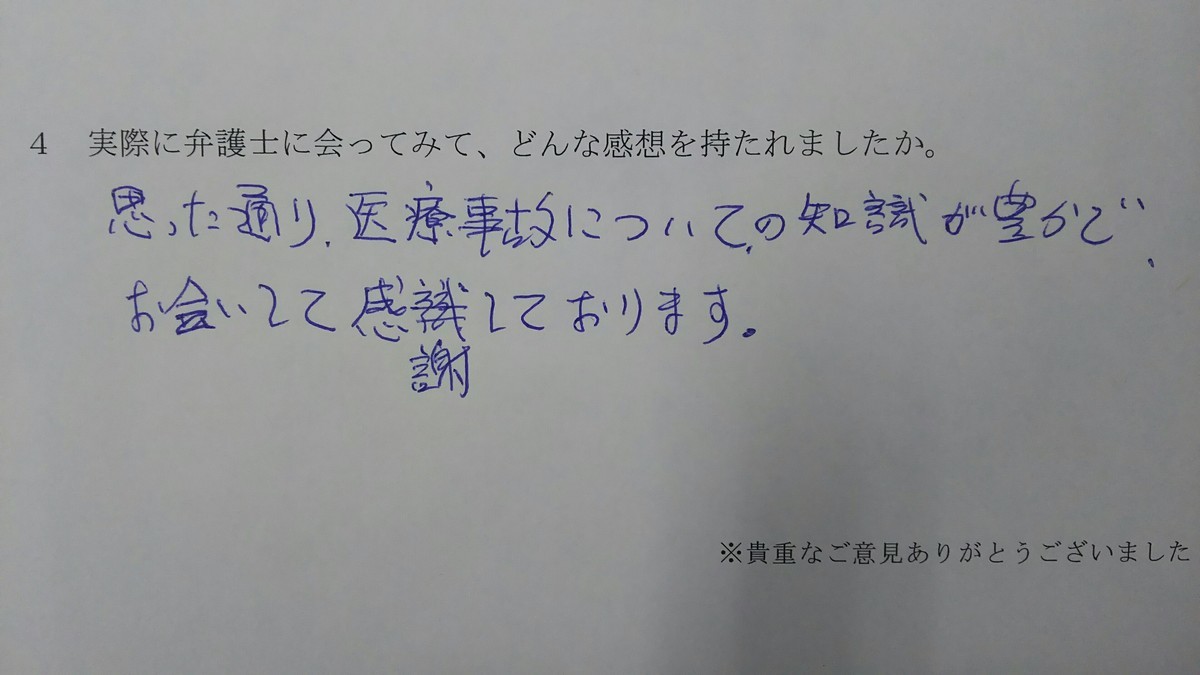 4 実際に弁護士に会ってみて、どんな感想を持たれましたか。
思った通り、医療事故についての知識が豊かで、
お会いして感識しております。
謝
※貴重なご意見ありがとうございました